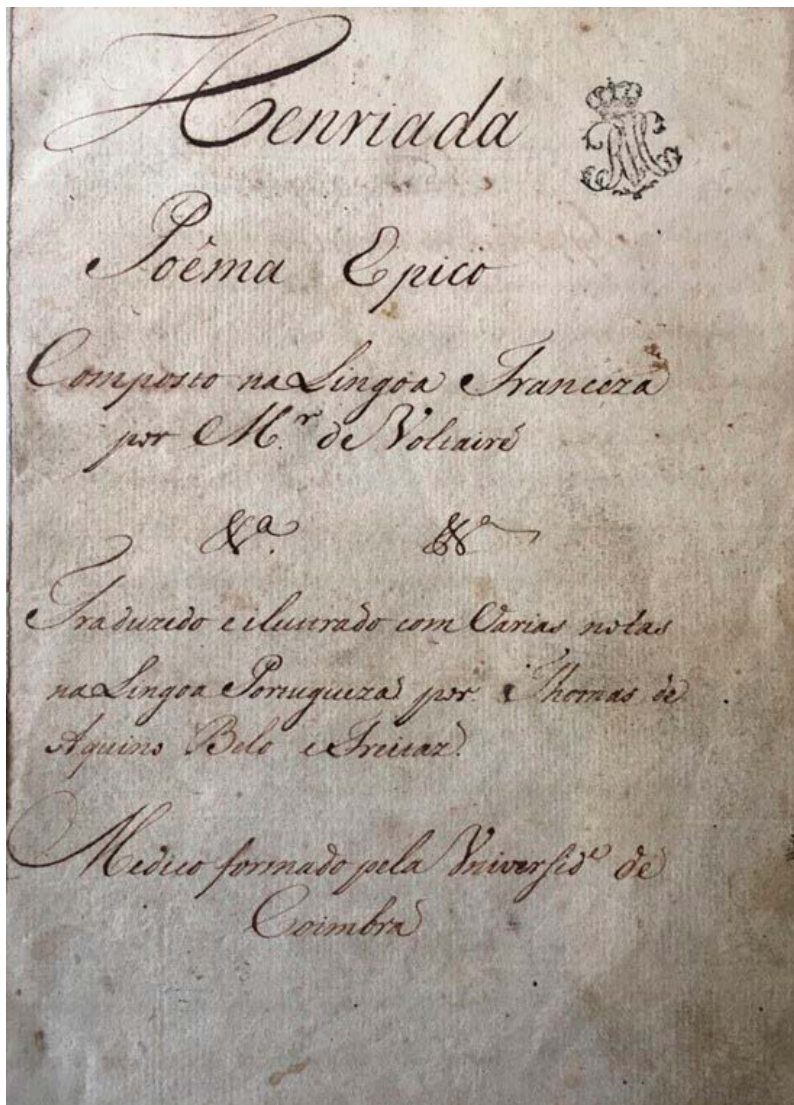 Henriada
Poêma Epico
Composto na Lingoa Franceza
por M.r de Voltaire
&a. &a
Traduzido e ilustrado com Varias notas
na Lingoa Portugueza por Thomas de
Aquino Belo e Freitaz.
Medico formado pela Universide de
Coimbra